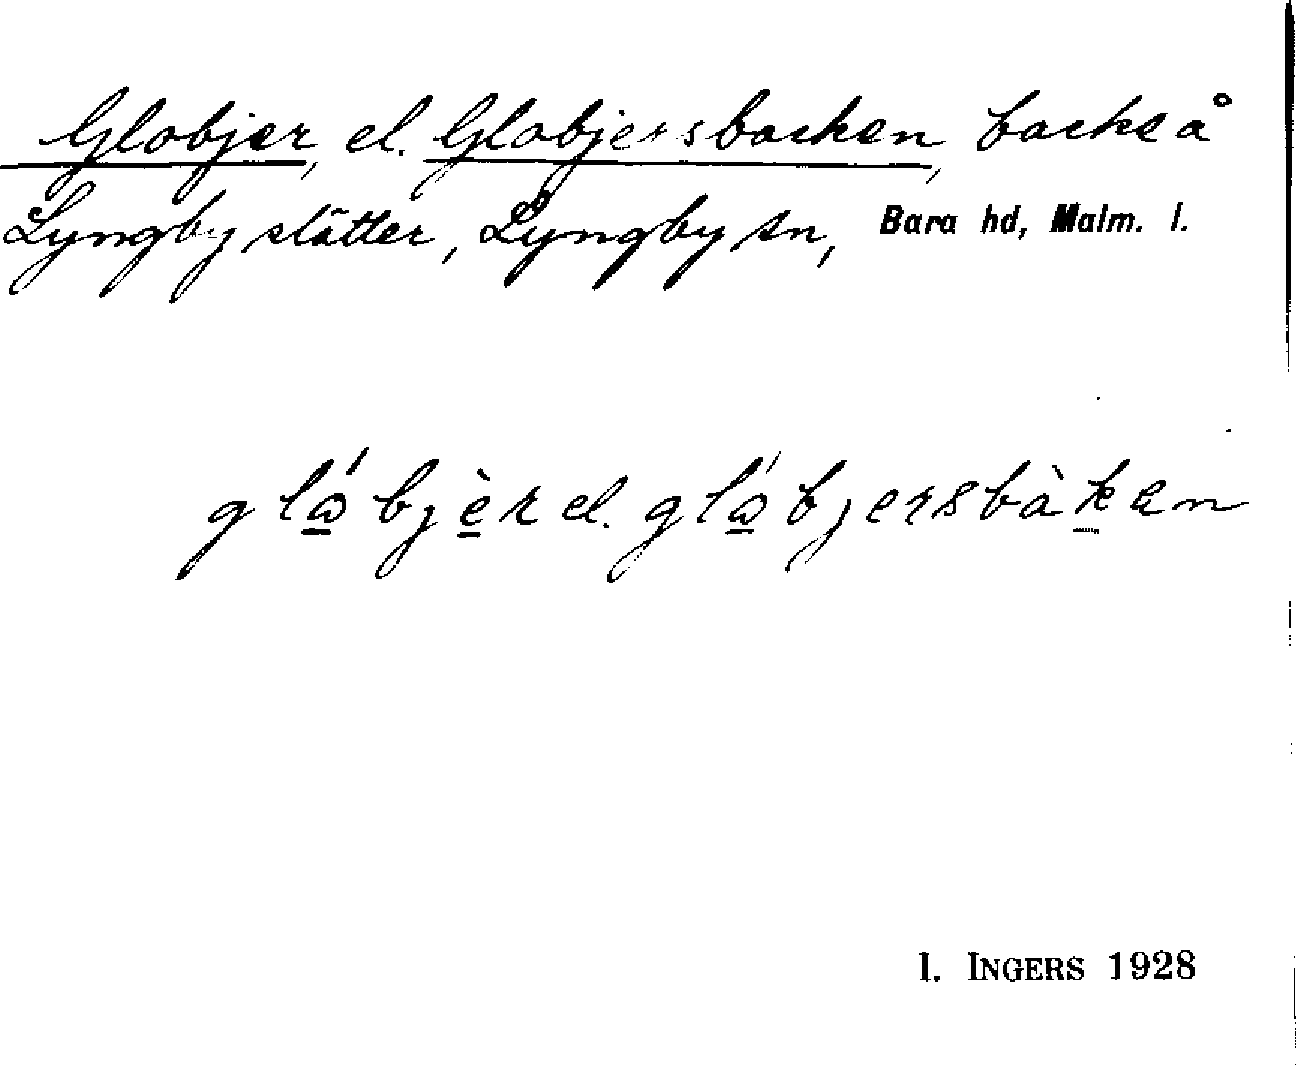 Globjer, el. Globjersbacken, backe å
Lyngby slätter, Lyngby sn, Bara hd, Malm. l.
glώ̱bjè̱r el. glώ̱bjersbàḵen
I. INGERS 1928